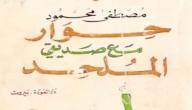 مصطفى محمود
حوار
مع صديقي
الملحد
دار العودة - بيروت